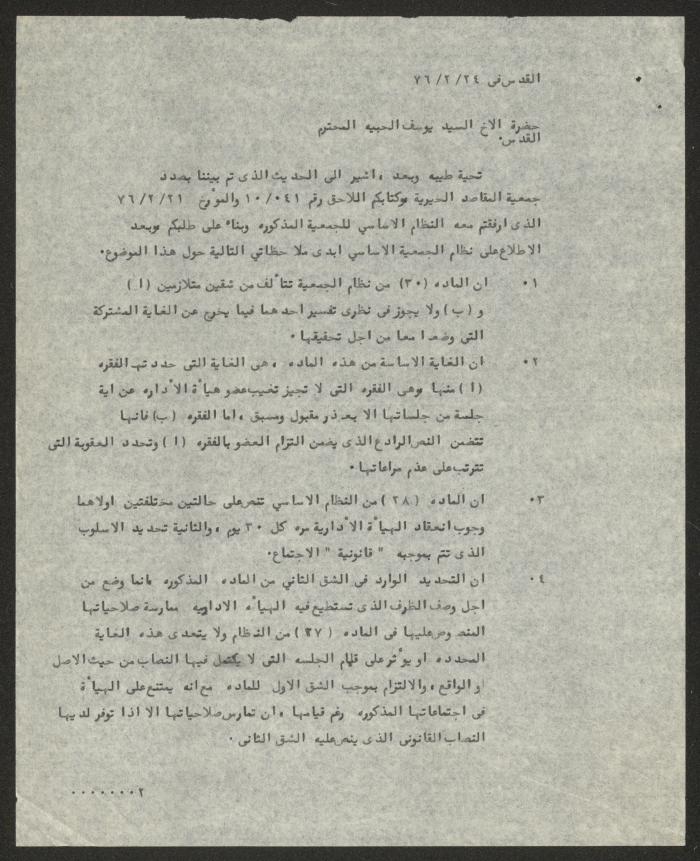 القدس في ٢٤ /٢ /٧٦
حضرة الاخ السيد يوسف الحبيه المحترم
القدس.
تحية طيبه وبعد ، اشير الى الحديث الذى تم بيننا بصدد
جمعية المقاصد الخيرية وكتابكم اللاحق رقم ١٠/٠٤١ والمؤرخ ٧٦/٢/٢١
الذى ارفقتم معه النظام الاساسي للجمعية المذكوره وبناء على طلبكم وبعد
الاطلاع على نظام الجمعية الاساسي ابدى ملاحظاتي التالية حول هذا الموضوع.
٠١ ان الماده (٣٠) من نظام الجمعية تتألف من شقين متلازمين (ا)
و (ب) ولا يجوز فى نظرى تفسير احدهما فيما يخرج عن الغاية المشتركة
التى وضعدا معا من اجل تحقيقها ٠
٠٢ ان الغاية الاساسة من هذه الماده ، هى الغاية التى حددتها الفقره
(ا) منها وهى الفقره التى لا تجيز تغيب عضو هيأة الأداره عن اية
جلسة من جلساتها الا بعذر مقبول ومسبق ، اما الفقره (ب) فانها
تتضمن النص الرادع الذى يضمن التزام العضو بالفقره (ا) وتحدد العقوبة التى
تترتب على عدم مراعاتها ٠
٠٣ ان الماده (٢٨) من النظام الاساسي تنص على حالتين مختلفتين اولاهما
وجوب انعقاد الهيأة الأدارية مره كل ٣٠ يوم ، والثانية تحديد الاسلوب
الذى تتم بموجبه " قانونية " الاجتماع.
٠٤ ان التحديد الوارد فى الشق الثاني من الماده المذكوره ، انما وضع من
اجل وصف الظرف الذى تستطيع فيه الهيأه الاداريه ممارسة صلاحياتها
المنصوص عليها فى الماده (٢٧) من النظام ولا يتعدى هذه الغاية
المحدده او يؤثر على قيام الجلسه التى لا يكتمل فيها النصاب من حيث الاصل
او الواقع ، والالتزام بموجب الشق الاول للماده مع انه يمتنع على الهيأة
فى اجتماعاتها المذكوره رغم قيامها ، ان تمارس صلاحياتها الا اذا توفر لديها
النصاب القانونى الذى ينص عليه الشق الثانى ٠
٢ ٠٠٠٠٠٠٠